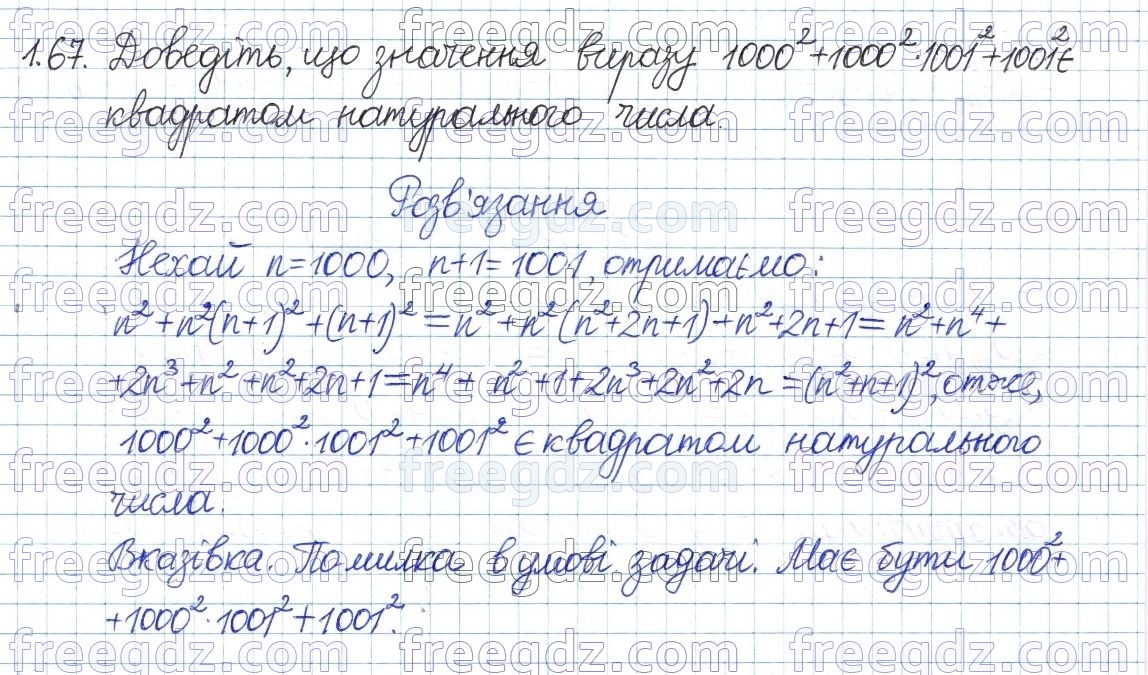 1.67. Доведіть, що значення виразу 1000²+1000²·1001²+1001² є
квадратом натурального числа.
Розв'язання
Нехай n=1000, n+1=1001, отримаємо:
n²+n²(n+1)²+(n+1)²=n²+n²(n²+2n+1)+n²+2n+1=n²+n⁴+
+2n³+n²+n²+2n+1=n⁴+n²+1+2n³+2n²+2n=(n²+n+1)², отже,
1000²+1000²·1001²+1001² є квадратом натурального
числа.
Вказівка. Помилка в умові задачі. Має бути 1000²+
+1000²·1001²+1001².